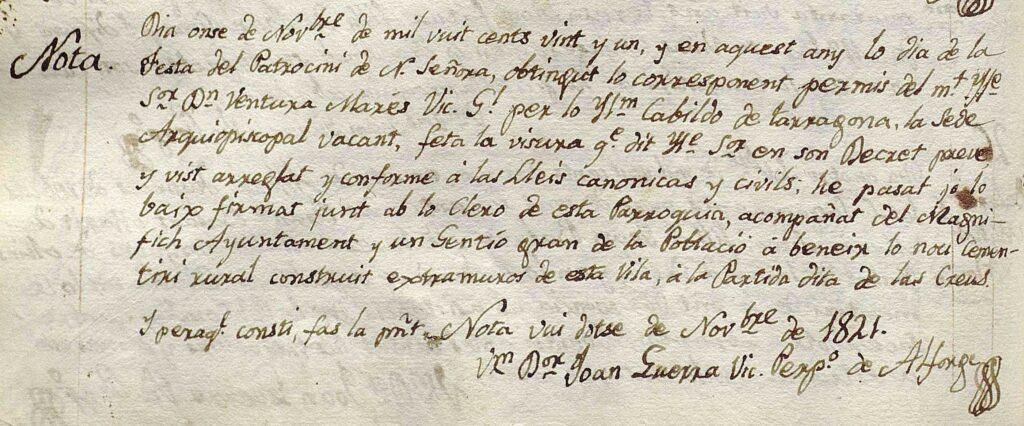 Nota. Dia onse de Nov^bre de mil vuit cents vint y un, y en aquest any lo dia de la
festa del Patrocini de N. Señora, obtingut lo corresponent permis del m^t Y^lle
S^or D^n Ventura Marés Vic. G^l per lo Yl^m Cabildo de tarragona, la Sede
Arquiepiscopal vacant, feta la visura q^e dit Y^lle S^or en son Decret preve
y vist arreglat y conforme á las Lleis canonicas y civils; he pasat jo lo
baix firmat junt ab lo Clero de esta Parroquia, acompañat del Magni-
fich Ayuntament y un Gentío gran de la Població á beneir lo nou Cemen-
tiri rural construit extramuros de esta Vila, á la Partida dita de las Creus.
Y peraq^e consti, fas la pñt. Nota vui dotse de Nov^bre de 1821.
D^or Joan Guerra Vic. Perp^o de Alforja